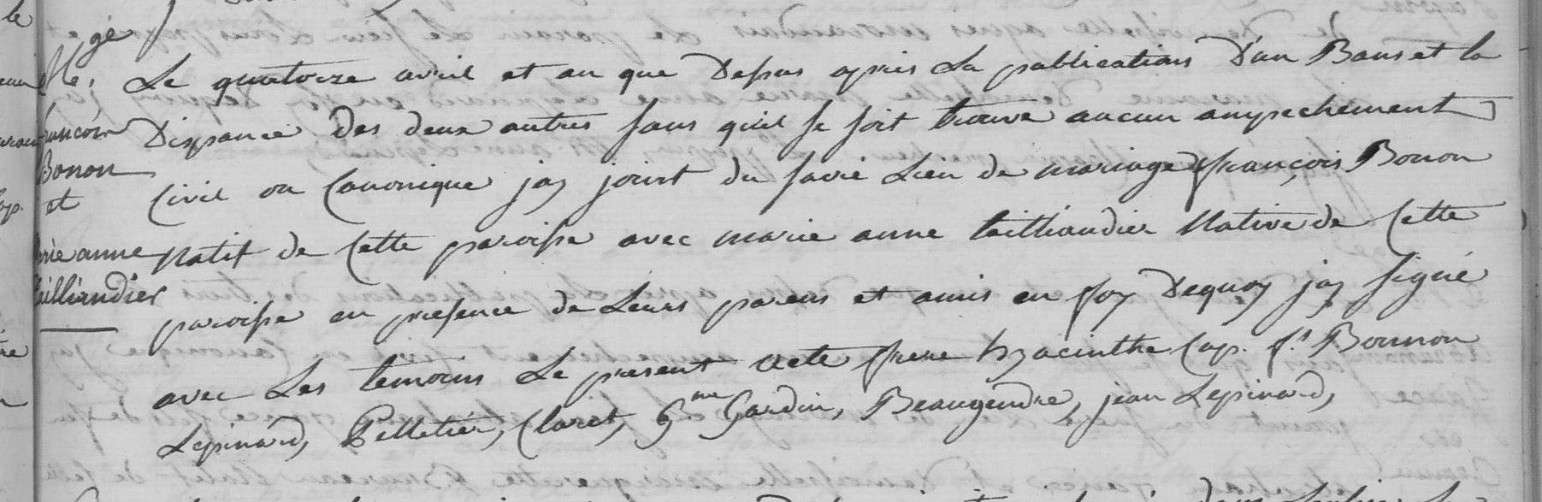 ge
Mr.
françois
Bonon
et
marie anne
tailliandier
Le quatorze avril et an que Dessus apres La publications D'un Bans et la
Dispance des deux autres sans qu'il se soit trouvé aucun anpechement
Civil ou Canonique jay joint du sacré Lien de mariage françois Bonon
Natif de Cette paroisse avec marie anne tailliandier Native de Cette
paroisse en presence de Leurs parens et amis en foy Dequoy jay signé
avec Les temoins Le present acte frere hyacinthe Cap. f.s Bonnon
Lepinard, Pelletier, Claret, Gme Gardin, Beaugendre, jean Lepinard,